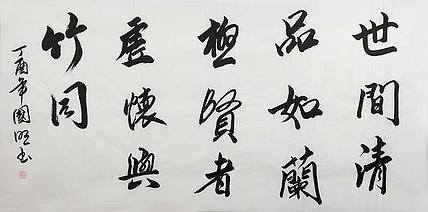 世間清
品如蘭
極賢者
虛懷與
竹同
丁酉年國旺書